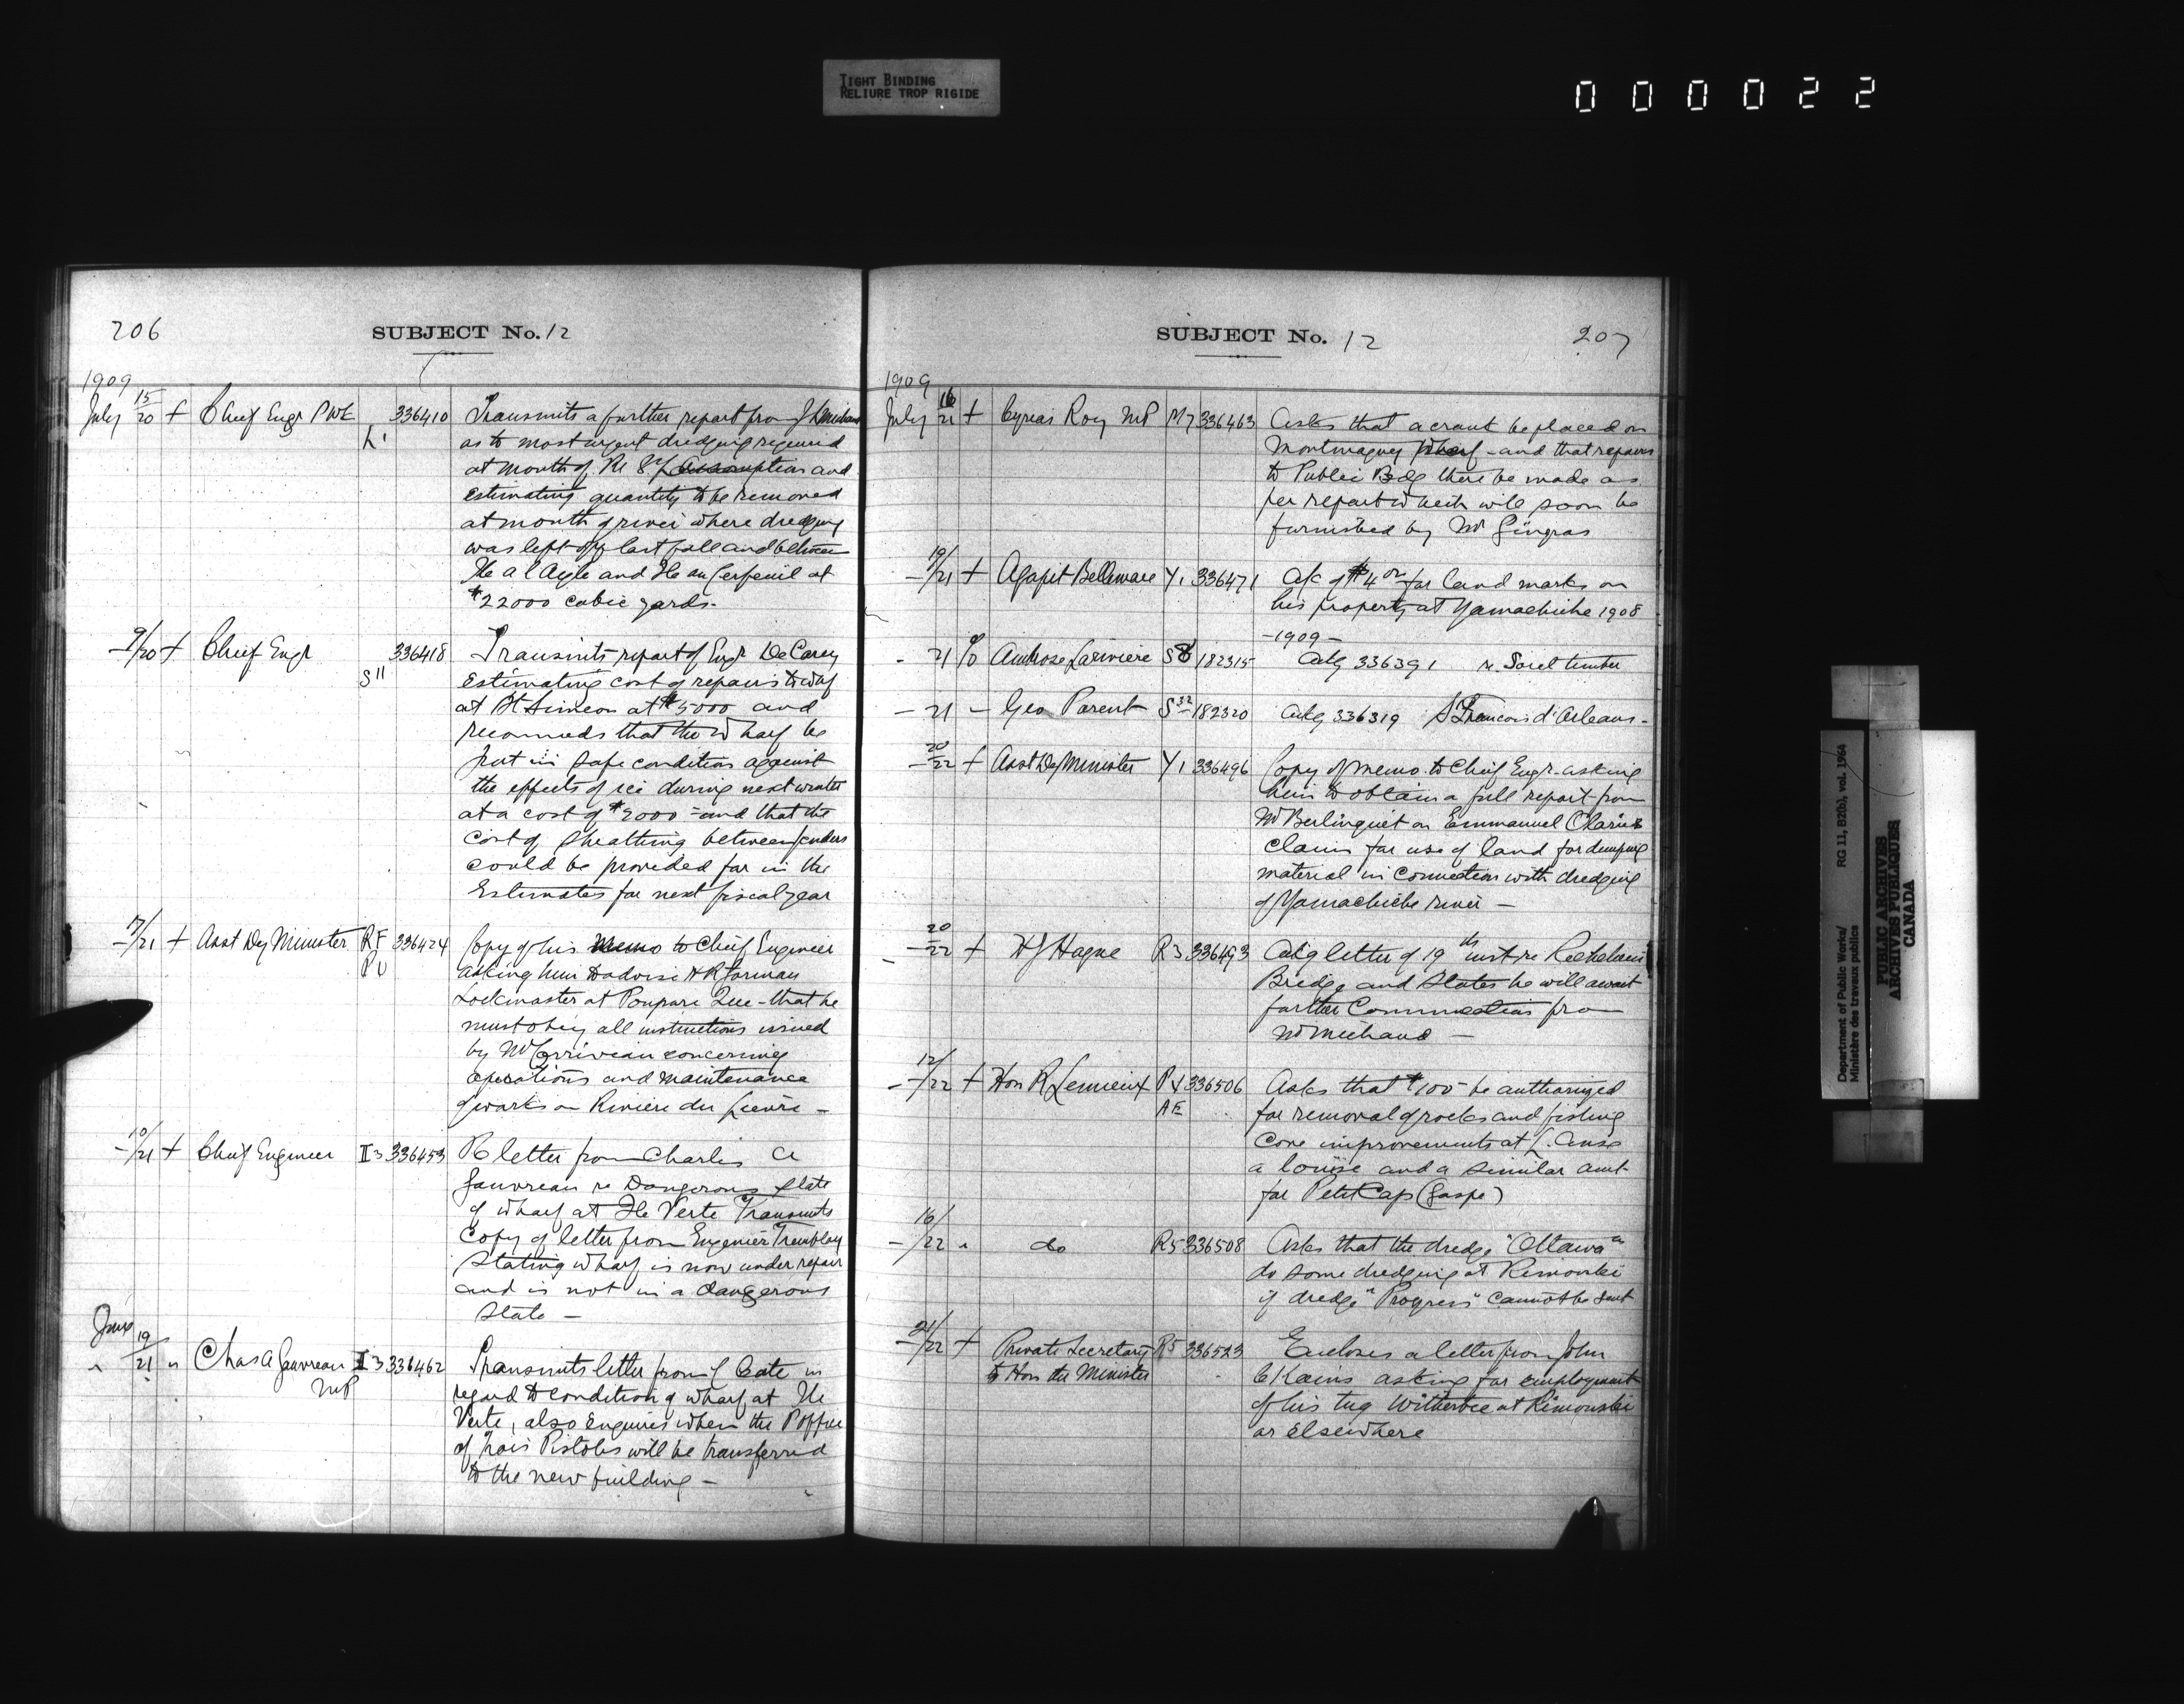 TIGHT BINDING
RELIURE TROP RIGIDE
000022
206
SUBJECT No. 12
1909
July 15/20 + Chief Engr PWD L1 336410 Transmits a further report from J L Michaud
as to most urgent dredging required
at mouth of Riv L'Assomption and
estimating quantity to be removed
at mouth of river where dredging
was left off last fall and between
Ile a l Aigle and Ile au Cerfeuil at
22000 cubic yards.
- 9/20 + Chief Engr S11 336418 Transmits report of Engr DeCarey
estimating cost of repairs to whf
at St Simeon at $5000 and
recommds that the Wharf be
put in safe condition against
the effects of ice during next winter
at a cost of $2000 - and that the
cost of sheathing between fenders
could be provided for in the
Estimates for next fiscal year
- 17/21 + Asst Dy Minister RF 336424 Copy of his memo to Chief Engineer
asking him to advise H R Forman
Lockmaster at Poupore Que - that he
must obey all instructions issued
by Mr Corriveau concerning
operations and maintenance
of works on Riviere du Lievre -
- 10/21 + Chief Engineer II3 336453 Re letter from Charles A
Gauvreau re Dangerous state
of wharf at Ile Verte Transmits
copy of letter from Engineer Tremblay
stating wharf is now under repair
and is not in a dangerous
state -
June
" 19/21 " Chas A Gauvreau MP II3 336462 Transmits letter from J Cote in
regard to condition of wharf at Ile
Verte, also enquires when the P office
of Trois Pistoles will be transferred
to the new building -
SUBJECT No. 12
207
1909
July 16/21 + Cyrias Roy MP M7 336463 Asks that a crane be placed on
Montmagny Wharf - and that repairs
to Public Bdg there be made as
per report which will soon be
furnished by Mr Gingras
- 19/21 + Agapit Bellemare Y1 336471 a/c of $4 00 for land marks on
his property at Yamachiche 1908
- 1909 -
- 21 % Ambrose Lariviere S8 182315 Ackg 336391 re Sorel timber
- 21 - Geo Parent S32 182320 Ackg 336319 St Francois d'Orleans -
- 20/22 + Asst Dy Minister Y1 336496 Copy of memo to Chief Engr asking
him to obtain a full report from
Mr Berlinguet on Emmanuel
claim for use of land for dumping
material in connection with dredging
of Yamachiche river -
- 20/22 + H J Hague R3 336493 Ackg letter of 19th inst re Richelieu
Bridge and states he will await
further from
Mr Michaud -
- 12/22 + Hon R Lemieux 336506 Asks that $100 - be authorized
AE for removal of rocks and fishing
cove improvements at L'Anse
a louise and a similar amt
for Petit Cap (Gaspe)
- 16/22 " do R5 336508 Asks that the dredge "Ottawa"
do some dredging at Rimouski
if dredge "Progress" cannot be sent
- 21/22 + Private Secretary R5 336523 Encloses a letter from John
to Hon the Minister asking for employment
of his tug Witherbee at Rimouski
or elsewhere
Department of Public Works/ RG 11, B2(b), vol. 1964
Ministère des travaux publics
PUBLIC ARCHIVES
ARCHIVES PUBLIQUES
CANADA